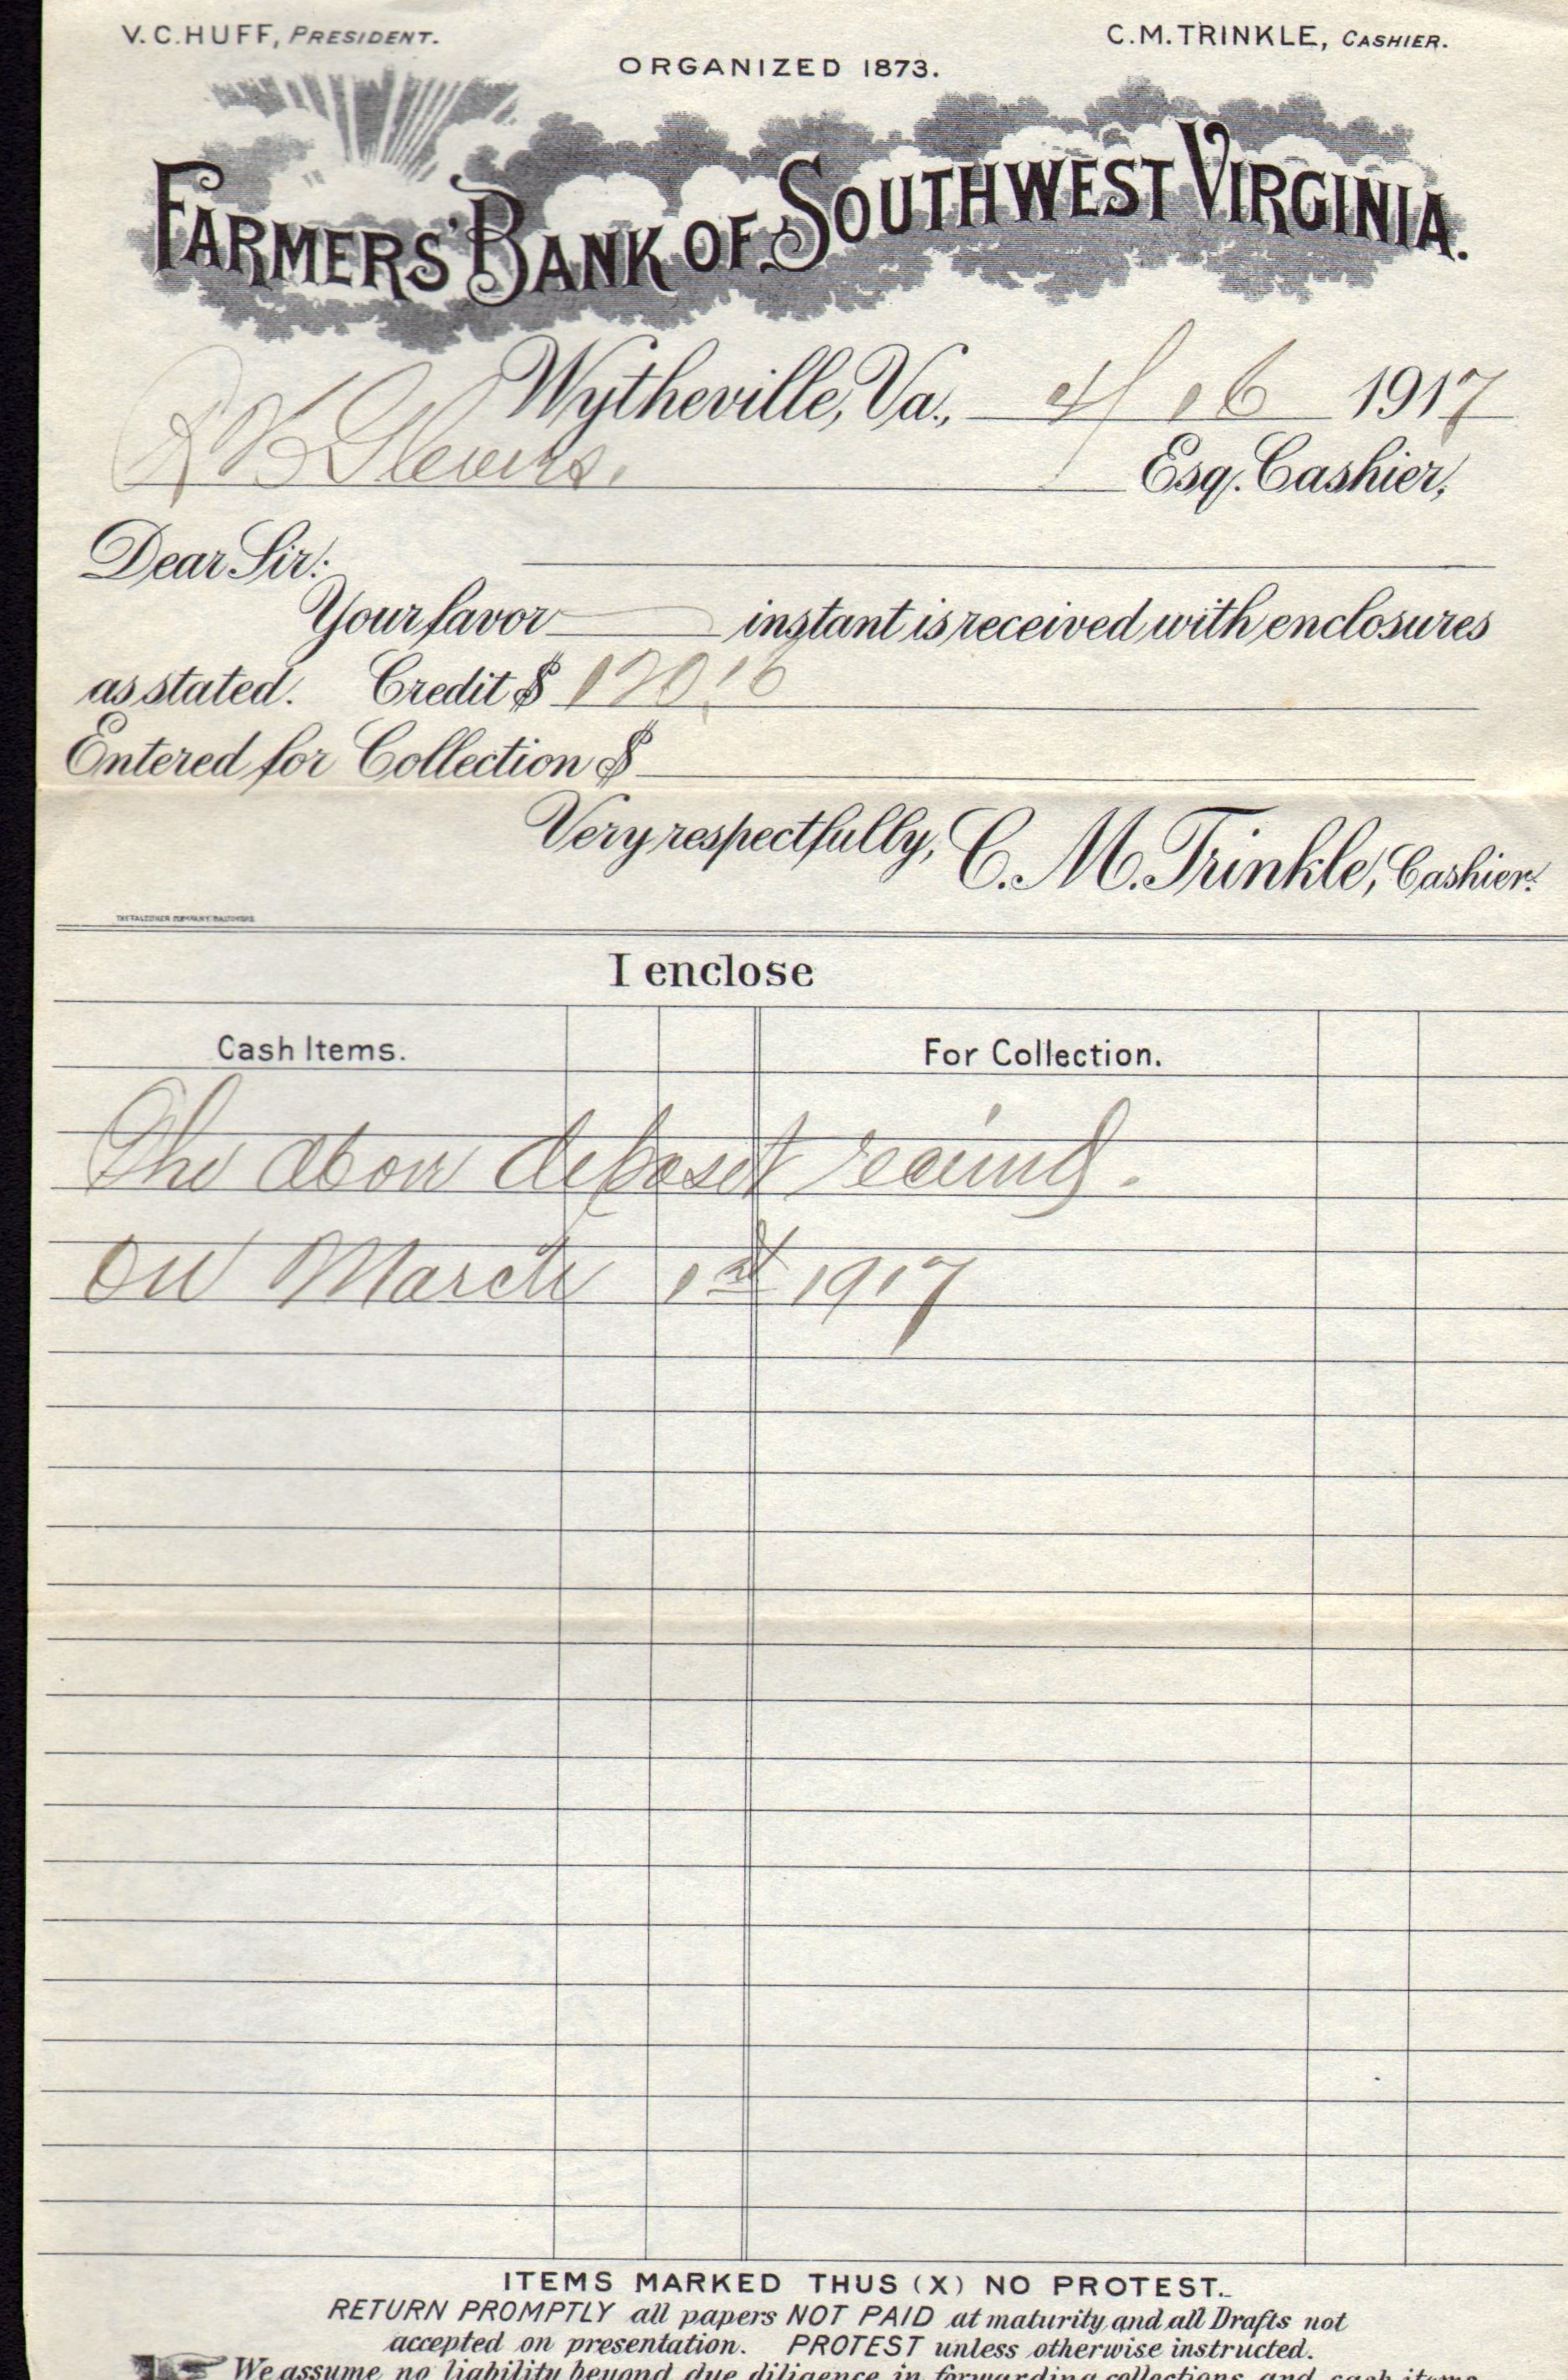 V.C.HUFF, PRESIDENT.
C.M.TRINKLE, CASHIER.
ORGANIZED 1873.
FARMERS' BANK OF SOUTHWEST VIRGINIA.
Wytheville, Va., 4/16 1917
R B Stevens. Esq. Cashier,
Dear Sir:
Your favor instant is received with enclosures
as stated. Credit $ 120.16
Entered for Collection $
Very respectfully, C. M. Trinkle, Cashier.
I enclose
Cash Items. For Collection.
The above deposit received.
on March 1st 1917
ITEMS MARKED THUS (X) NO PROTEST.
RETURN PROMPTLY all papers NOT PAID at maturity and all Drafts not
accepted on presentation. PROTEST unless otherwise instructed.
We assume no liability beyond due diligence in forwarding collections and cash items